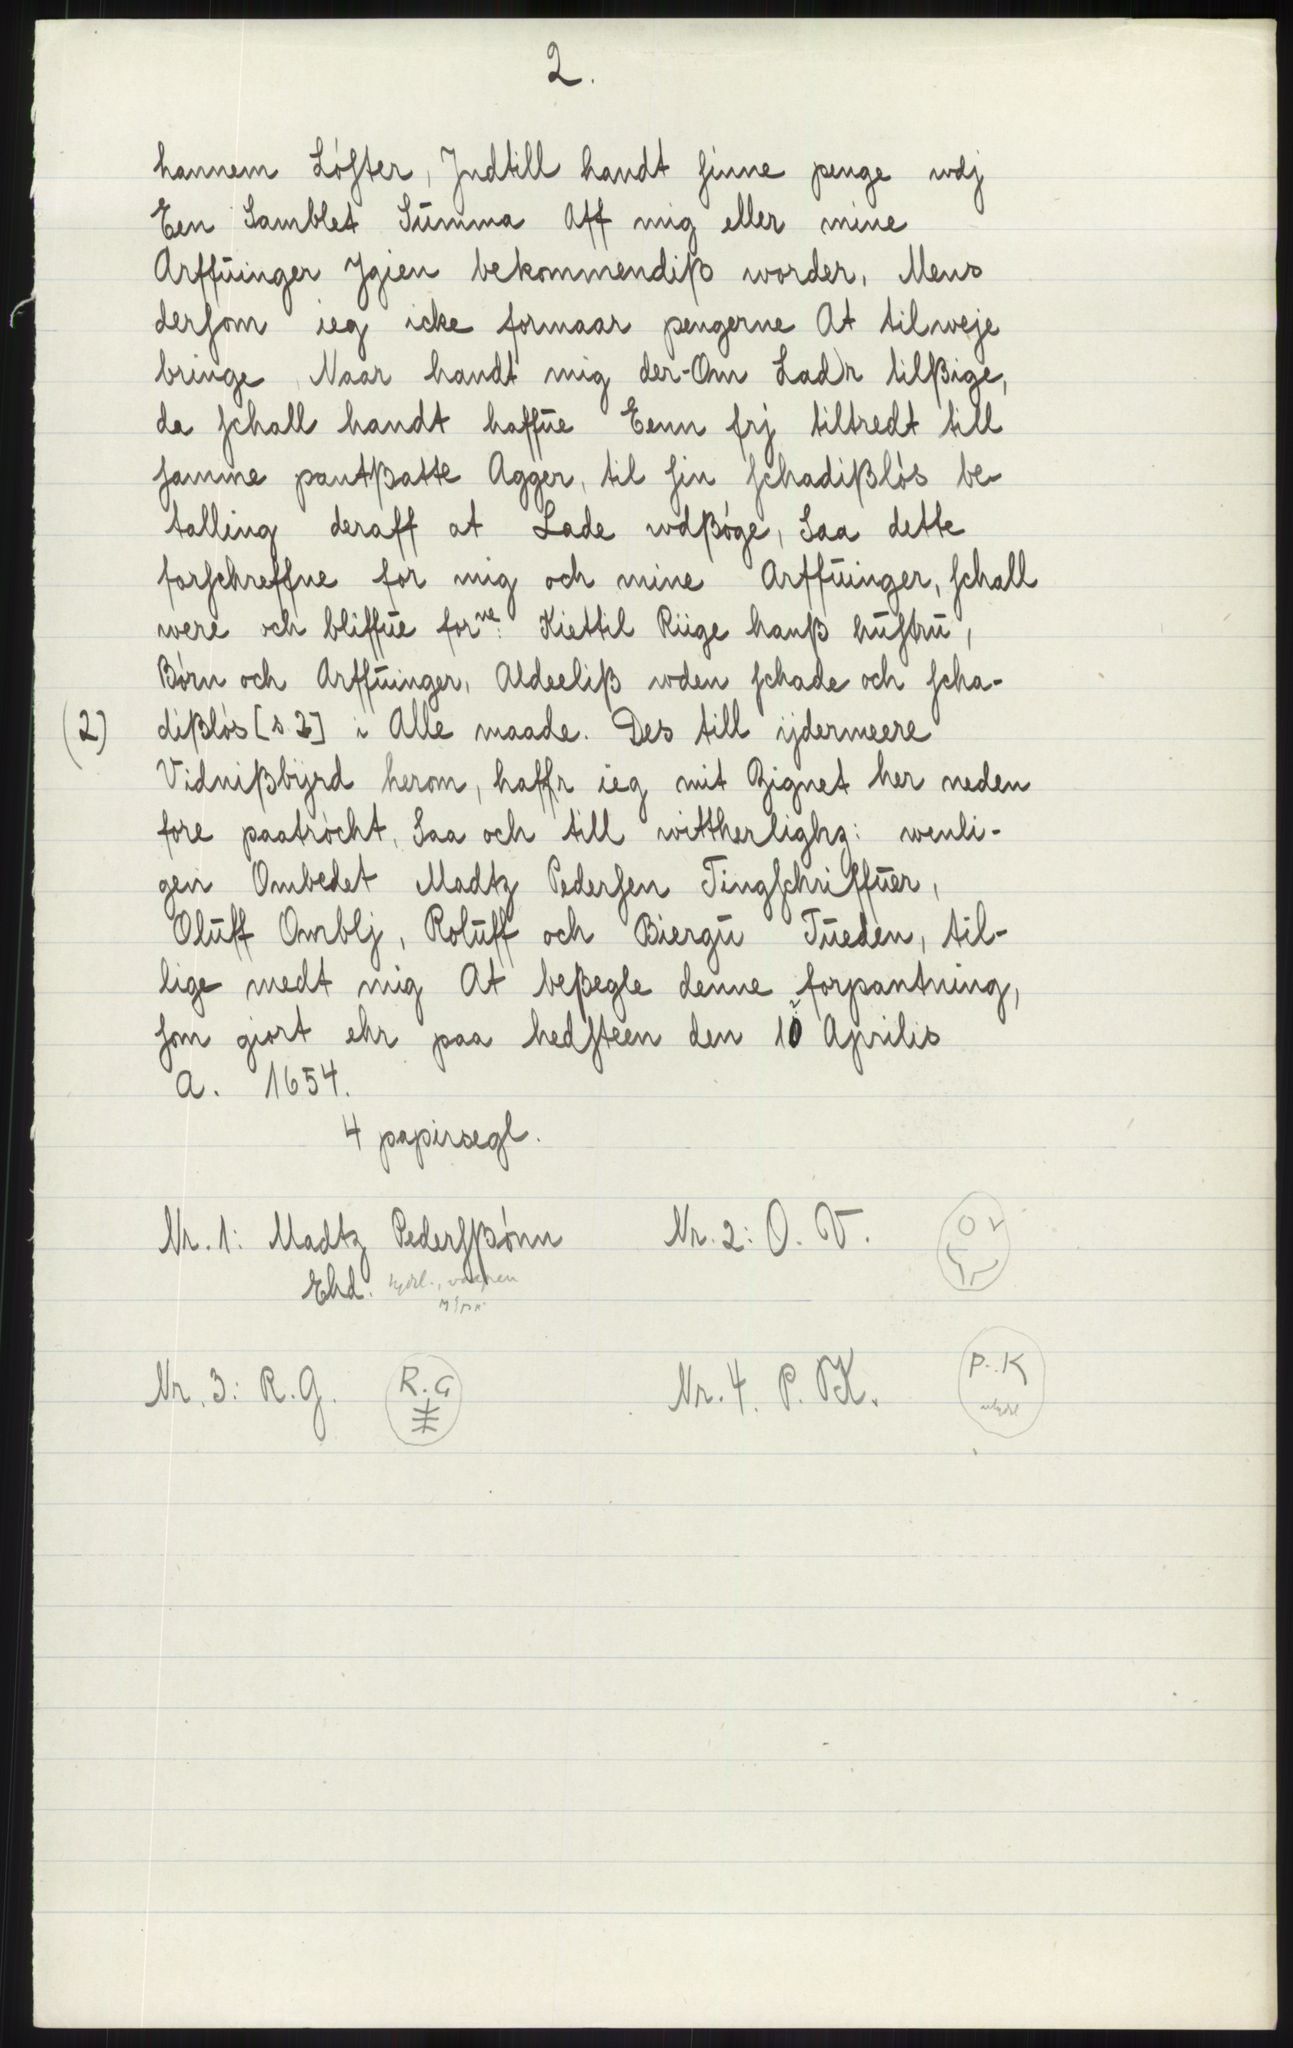 2.
hannem Lófter, Jndtill handt sinne penge wdj
Een Samblet Sūmma Aff mig eller mine
Arffūinger Jgien bekommendiß worder, Mens
dersom ieg icke formaar pengerne At tilweje
bringe, Naar handt mig der-Om Ladr tilßige,
da schall handt haffūe Eenn frj tiltredt till
samme pantßatte Agger, til sin schadißlós be-
talling deraff at Lade wdßóge, Saa dette
forschreffne for mig och mine Arffūinger, schall
were och bliffūe forne: Kiettil Riige hanß hūstrū,
Bórn och Arffūinger, Aldeeliß wden schade och scha-
(2) dißlós [s 2] i Alle maade. Des till ijdermeere
Vidnißbijrd herom, haffr ieg mit Zignet her neden
fore paatrócht, Saa och till wittherlighz: wenli-
gen Ombedet Madtz Pedersen Tingschriffūer,
Olūff Omblj, Rolūff och Biergū Tūeden, til-
lige medt mig At beßegle denne forpantning,
som giort ehr paa hedsteen den 10 Aprilis
A. 1654.
4 papirsegl.
Nr. 1: Madtz Pedersßónn Nr. 2: O. V.
Ehd.
Nr. 3: R. G. R. G Nr. 4. P. K. P. K